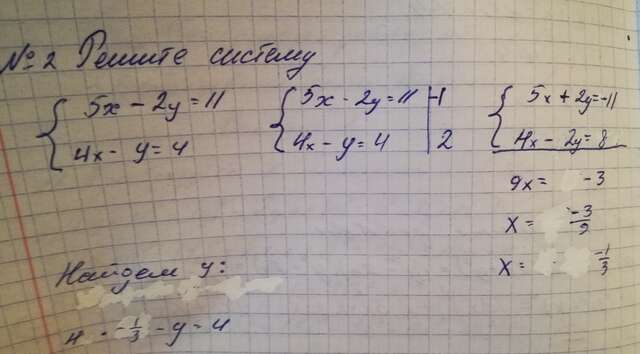 №2 Решите систему
{ 5x - 2y = 11
4x - y = 4
{ 5x - 2y = 11 | -1
4x - y = 4 | 2
{ 5x + 2y = -11
4x - 2y = 8
9x = -3
x = -3/9
x = -1/3
Найдем y:
4 · -1/3 - y = 4